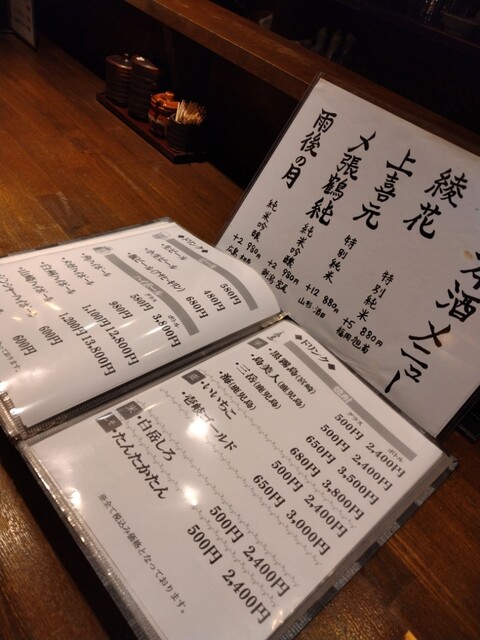 日本酒メニュー
綾花 特別純米 +5 880円 福岡・旭菊
上喜元 特別純米 +12 880円 山形・酒田
〆張鶴 純 純米吟醸 +2 980円 新潟・宮尾
雨後の月 純米吟醸 +2 980円
◆ドリンク◆
・生ビール 580円
・瓶ビール 680円
480円
580円 3,800円
980円
1,100円 12,800円
1,200円 13,800円
600円
600円
◆ドリンク◆
焼酎
グラス ボトル
芋 ・黒霧島(宮崎) 500円 2,400円
・島美人(鹿児島) 500円 2,400円
・三岳(鹿児島) 650円 3,500円
・海(鹿児島) 680円 3,800円
麦 ・いいちこ 500円 2,400円
・壱岐ゴールド 650円 3,000円
米 ・白岳しろ 500円 2,400円
・たんたかたん 500円 2,400円
※全て税込み価格となっております。